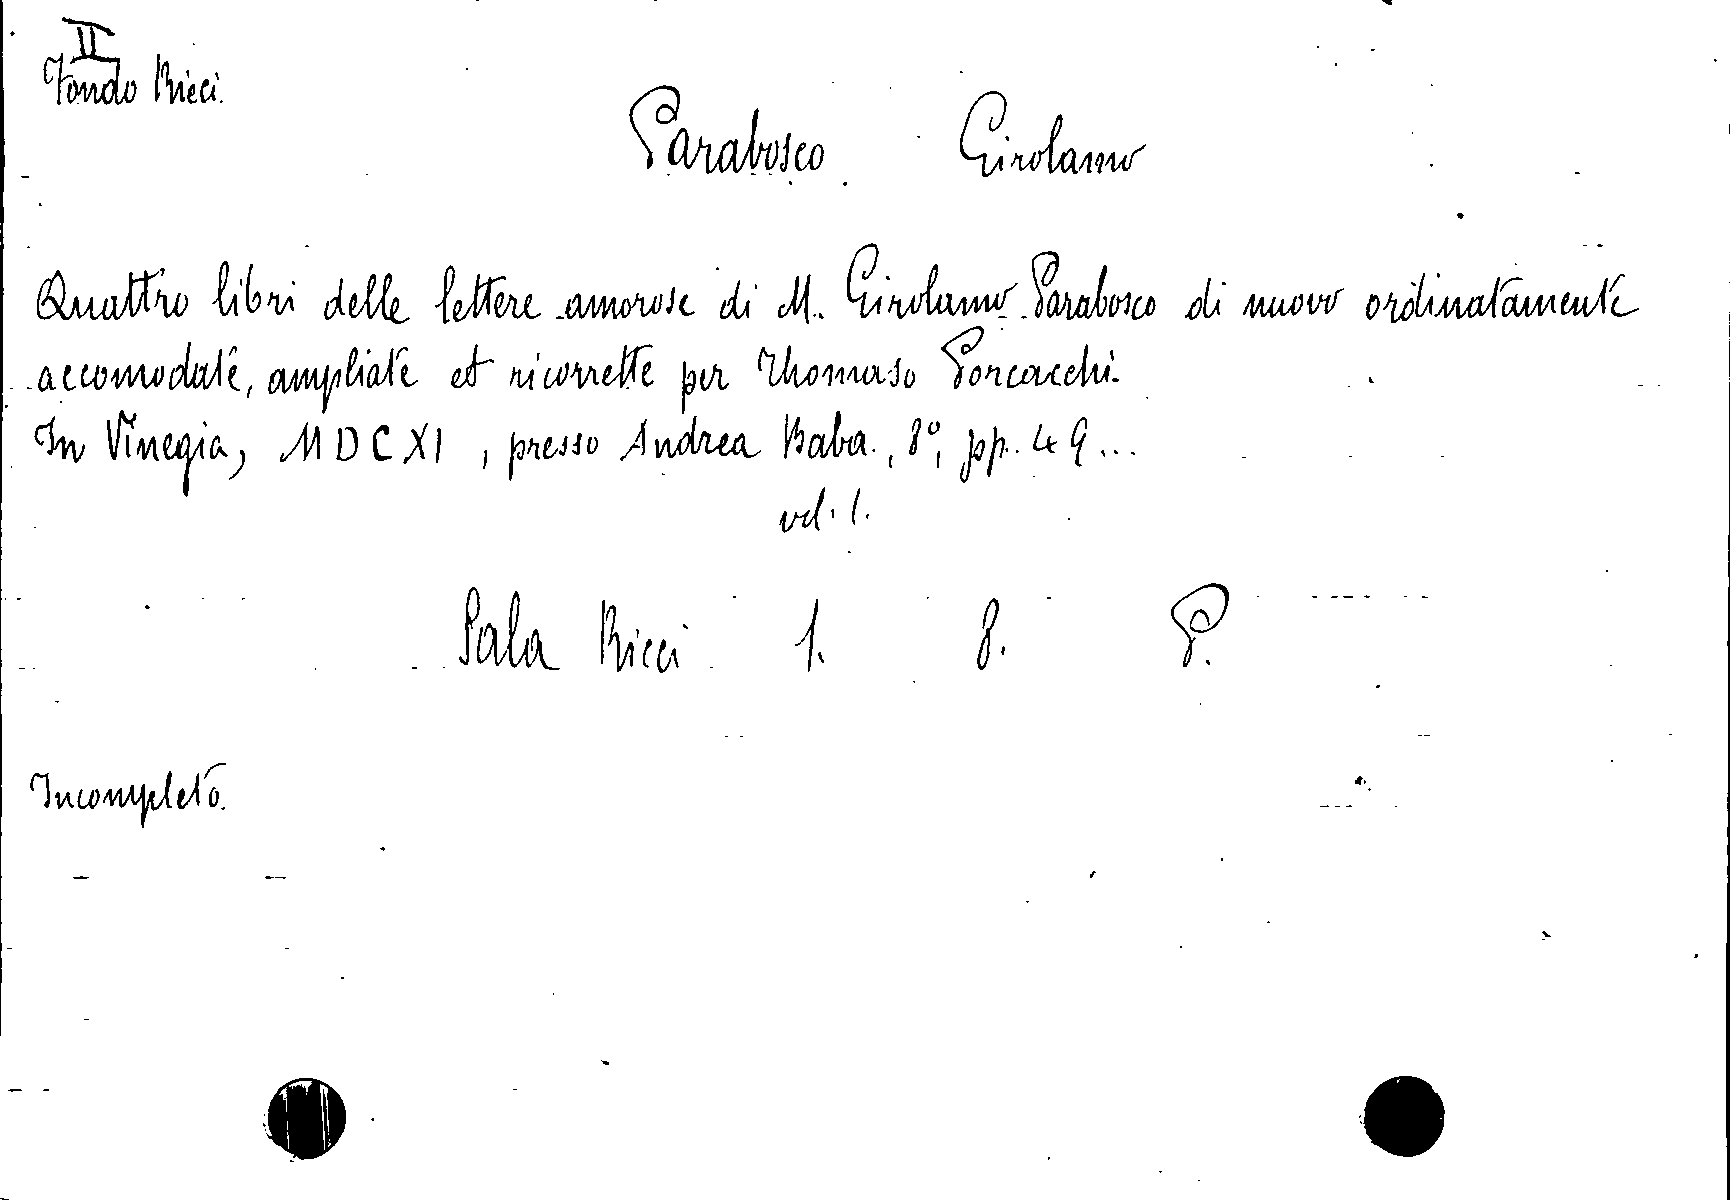 II
Fondo Ricci.
Parabosco Girolamo
Quattro libri delle lettere amorose di M. Girolamo Parabosco di nuovo ordinatamente
accomodate, ampliate et ricorrette per Thomaso Porcacchi.
In Vinegia, MDCXI, presso Andrea Baba., 8°, pp. 49...
vol. 1.
Sala Ricci 1. 8. P.
Incompleto.